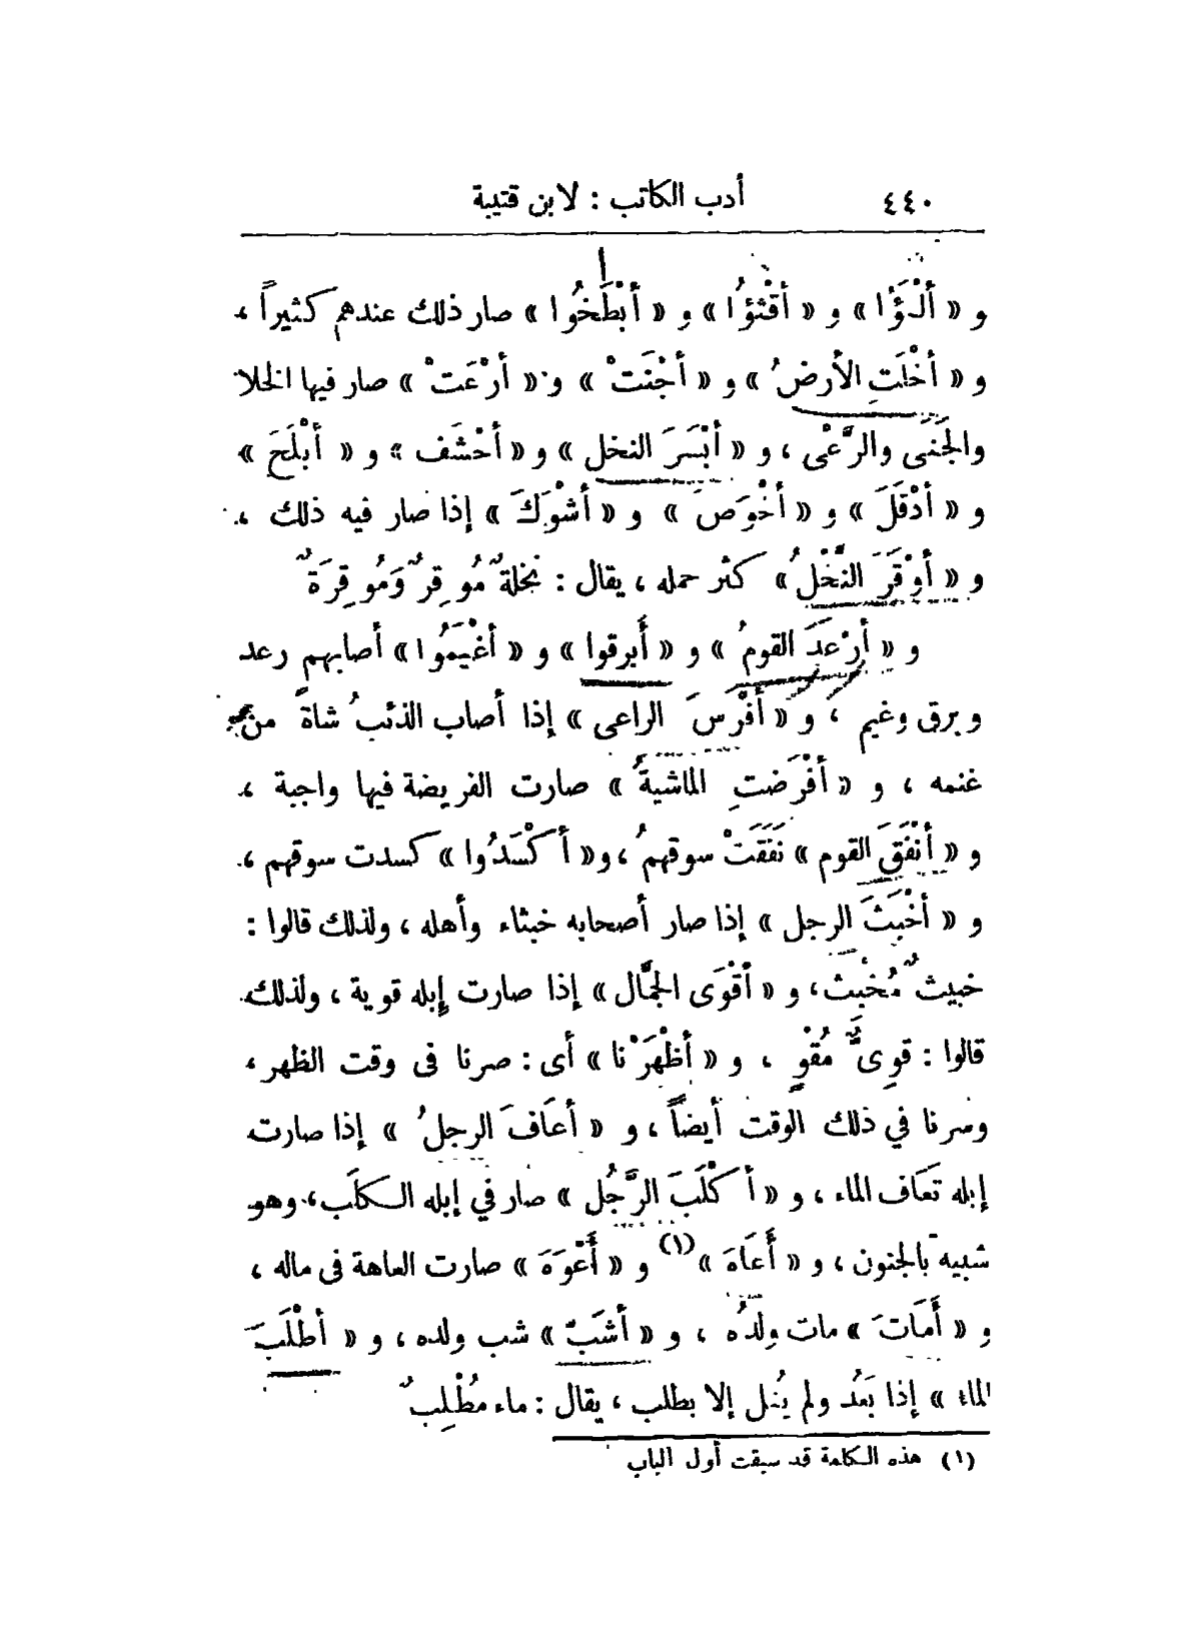 ٤٤٠ أدب الكاتب : لابن قتيبة
و « أَلْبَؤُا » و « أَقْثَؤُا » و « أَبْطَخُوا » صار ذلك عندهم كثيراً ،
و « أَخْلَتِ الأرضُ » و « أَجْنَتْ » و « أَرْعَتْ » صار فيها الخلا
والجَنَى والرَّعْى ، و « أَبْسَرَ النخل » و « أَحْشَف » و « أَبْلَحَ »
و « أَدْقَلَ » و « أَخْوَصَ » و « أَشْوَكَ » إذا صار فيه ذلك ،
و « أَوْقَرَ النَّخْلُ » كثر حمله ، يقال : نخلةٌ مُوقِرٌ وَمُوقِرَةٌ
و « أَرْعَدَ القومُ » و « أَبرقوا » و « أَغْيَمُوا » أصابهم رعد
وبرق وغيم ، و « أَفْرَسَ الراعى » إذا أصاب الذئبُ شاةً من
غنمه ، و « أَفْرَضتِ الماشيةُ » صارت الفريضة فيها واجبة ،
و « أَنْفَقَ القوم » نَفَقَتْ سوقهمُ ، و « أَكْسَدُوا » كسدت سوقهم ،
و « أَخْبَثَ الرجل » إذا صار أصحابه خبثاء وأهله ، ولذلك قالوا :
خبيثٌ مُخْبِث ، و « أَقْوَى الجَمَّال » إذا صارت إبله قوية ، ولذلك
قالوا : قوِىٌّ مُقْوٍ ، و « أَظْهَرْنا » أى : صرنا فى وقت الظهر ،
وسرنا في ذلك الوقت أيضاً ، و « أَعَافَ الرجلُ » إذا صارت
إبله تَعَاف الماء ، و « أَكْلَبَ الرَّجُل » صار في إبله الكلَب ، وهو
شبيه بالجنون ، و « أَعَاهَ » (١) و « أَعْوَهَ » صارت العاهة فى ماله ،
و « أَمَاتَ » مات ولدُه ، و « أَشَبَّ » شب ولده ، و « أَطْلَبَ
الماء » إذا بَعُد ولم يُنل إلا بطلب ، يقال : ماء مُطْلِبٌ
(١) هذه الكلمة قد سبقت أول الباب